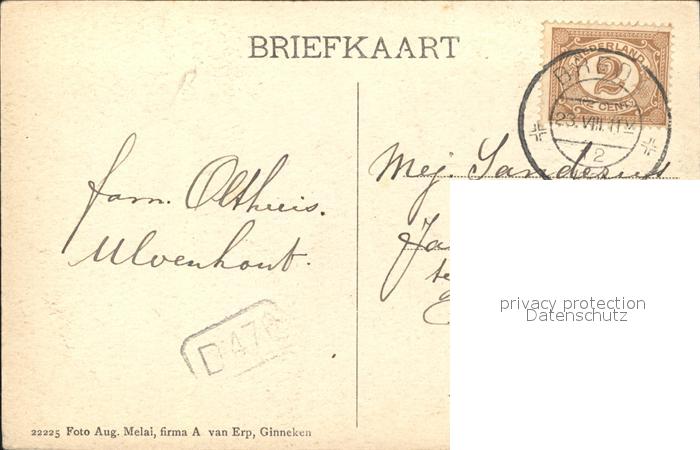 BRIEFKAART
NEDERLAND
2
CENT
23.VIII.11
2
fam. Olthuis.
Ulvenhout.
Mej. Sanders
Ja
te
D 476
privacy protection
Datenschutz
22225 Foto Aug. Melai, firma A van Erp, Ginneken